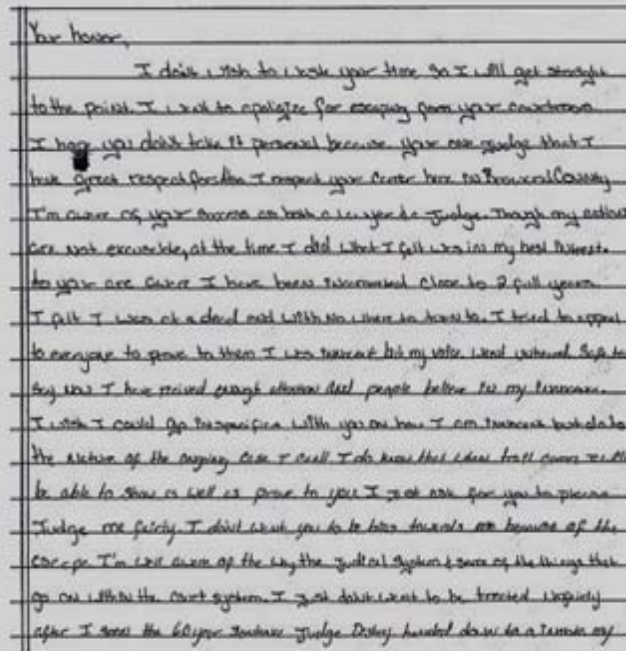 Your honor,
I don't wish to waste your time so I will get straight
to the point. I want to apoligize for escaping from your courtroom.
I hope you don't take it personal because your one Judge that I
have great respect for. Also I respect your career here in Broward County
I'm aware of your success as both a lawyer & Judge. Though my actions
are not excusable, at the time I did what I felt was in my best interest.
As you are aware I have been incarcerated close to 2 full years.
I felt I was at a dead end with no where to turn to. I tried to appeal
to everyone to prove to them I was innocent but my voice went unheard.
say now I have recived enough attention and people believe in my innocence.
I wish I could go in specifics with you on how I am innocent but due to
the nature of the ongoing case I can't. I do know that when trial comes I'll
be able to show as well as prove to you. I just ask for you to please
Judge me fairly. I don't want you to be bias towards me because of the
escape. I'm well aware of the way the Judical system & some of the things that
go on within the court system. I just don't want to be treated unfairly
after I seen the 60 year sentence Judge handed down to a my